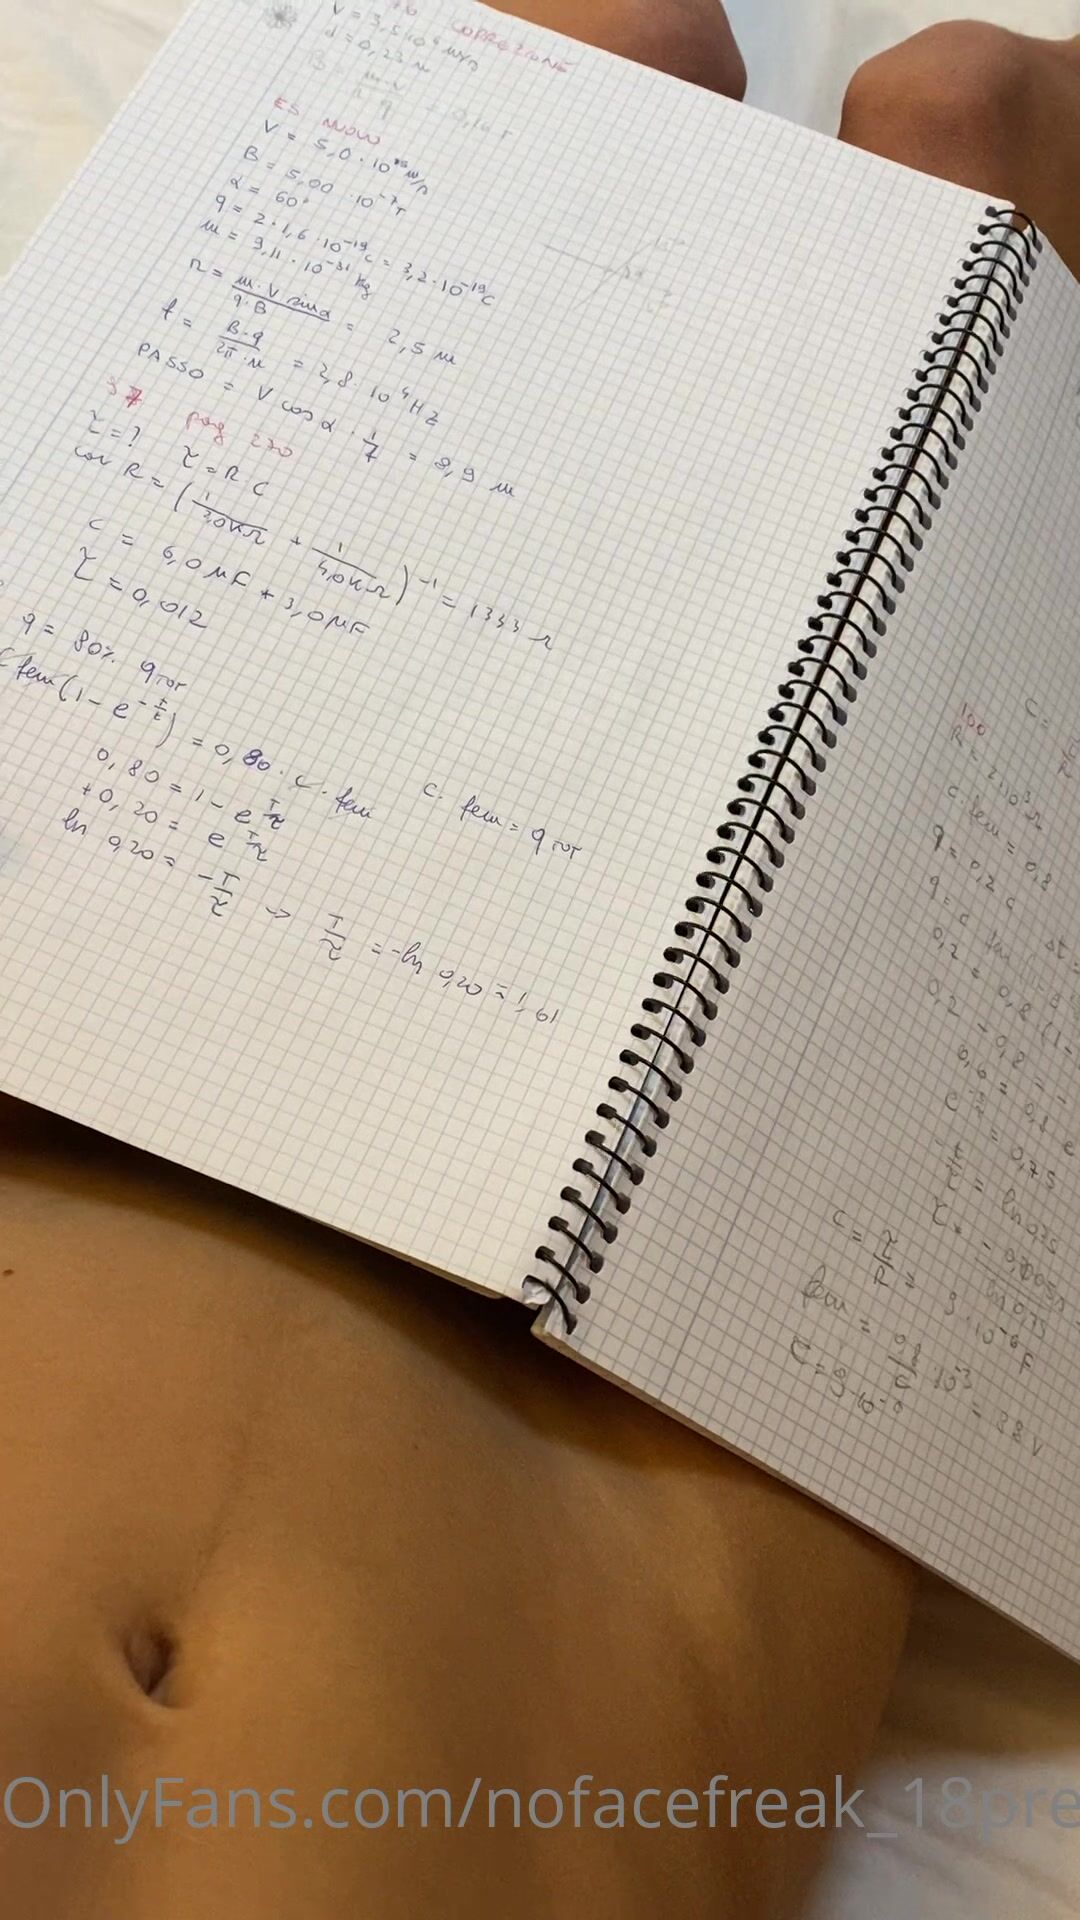 CORREZIONE
d = 0,23 m
ES NUOVO
V = 5,0 · 10
B = 5,00 · 10⁻⁷ T
α = 60°
q = 2 · 1,6 · 10⁻¹⁹ C = 3,2 · 10⁻¹⁹ C
m = 9,11 · 10⁻³¹ kg
r = m · V sinα / q · B = 2,5 m
f = B · q / 2π · m = 2,8 · 10⁴ Hz
PASSO = V cos α · 1/f = 8,9 m
37 pag 270
τ = ? τ = R C
con R = (1/2,0KΩ + 1/4,0KΩ)⁻¹ = 1333 Ω
C = 6,0 μF + 3,0 μF
τ = 0,012
q = 80% qTOT
C fem (1 - e^-T/τ) = 0,80 · C · fem C · fem = qTOT
0,80 = 1 - e^-T/τ
+0,20 = e^-T/τ
ln 0,20 = -T/τ → T/τ = -ln 0,20 = 1,61
C =
100
R = 2·10³ Ω
C fem = 0,8
q = 0,2 C
q = C fem
0,2 = 0,8 · (1-
0,2 - 0,8 = -
0,6 = 0,8 e
= 0,75
= ln 0,75
τ = - 
ln 0,75
C = τ/R = 9 · 10⁻⁶ F
fem =
= 88 V
OnlyFans.com/nofacefreak_18pre